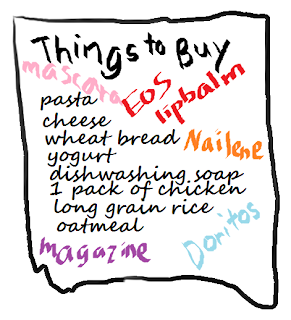 Things to Buy
mascara
EOS
lipbalm
pasta
cheese
wheat bread
Nailene
yogurt
dishwashing soap
1 pack of chicken
long grain rice
oatmeal
Doritos
magazine